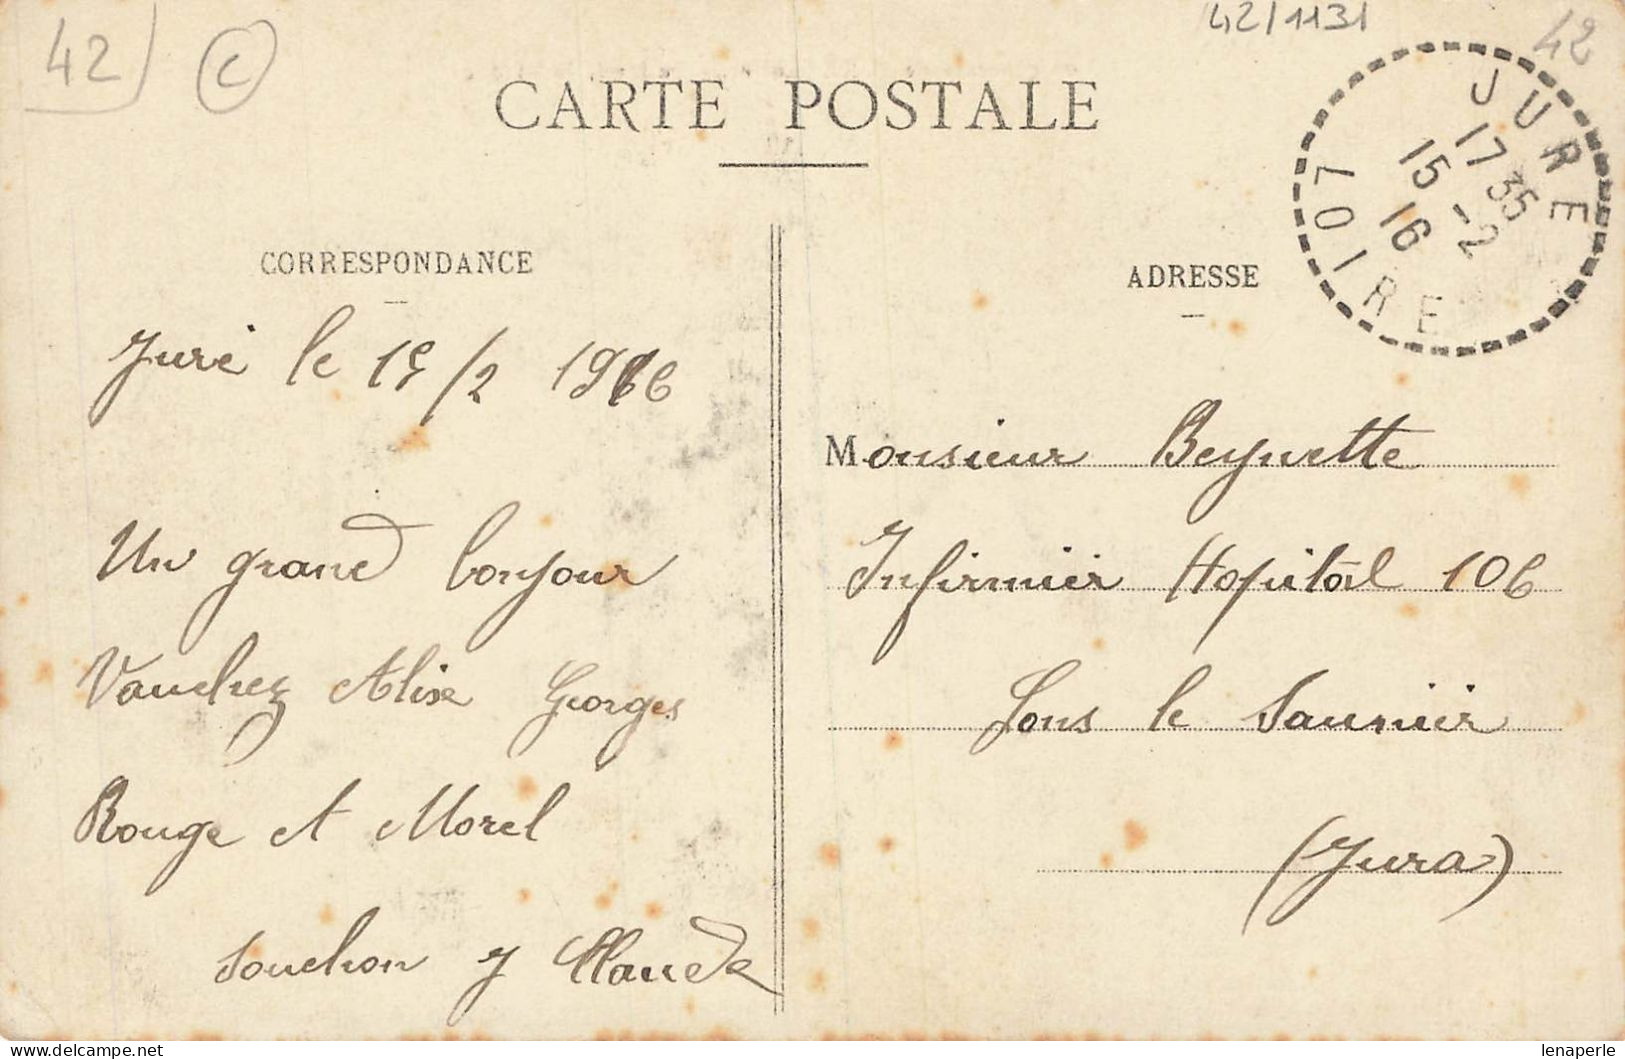 42
C
42/1131
42
CARTE POSTALE
JURE
17 35
15 -2
16
LOIRE
CORRESPONDANCE
ADRESSE
Juré le 15/2 1916
Un grand bonjour
Vauchez Alixe Georges
Rouge et Morel
Souchon J Claude
Monsieur Beynette
Infirmier Hopital 106
Lons le Saunier
(Jura)
delcampe.net
lenaperle